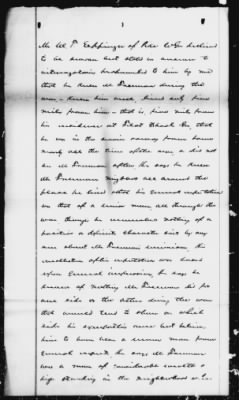 Mr W. P. Eppinger of Pike Co Ga declined
to be sworn but states in answer to
interrogatories propounded to him by me
that he knew M Freeman during the
war - knew him well lived only five
miles from him - that is, five miles from
his residence at Flat Shoals Ga, that
he was in the army away from home
nearly all the time of the war & did not
see M Freeman often, he says he knew
M Freemans neighbors all around the
place he lived & that his general reputation
was that of a union man all through the
war though he remembers nothing of a
positive or definite character said by any
one about M Freemans unionism, his
recollection of his reputation was based
upon general impression, he says he
knows of nothing M Freeman did for
one side or the other during the war
that would tend to show on which
side his sympathies were but believes
him to have been a union man from
general report, he says M Freeman
was a man of considerable wealth &
high standing in the neighborhood &c